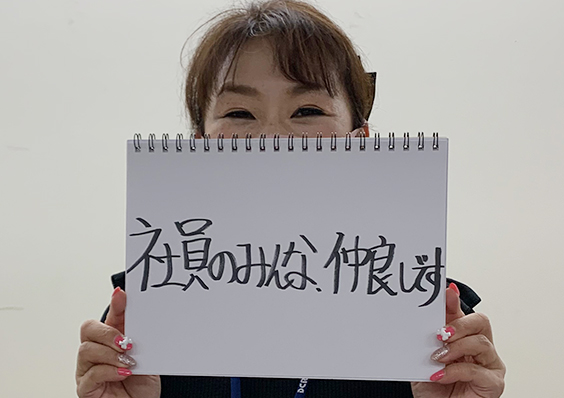 社員のみんな、仲良しです